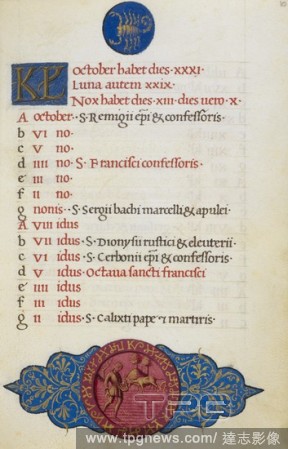 KL October habet dies · XXXI ·
Luna autem XXIX ·
Nox habet dies · XIII · dies vero · X ·
A October · S · Remigii epi & confessoris ·
b VI no ·
c V no ·
d IIII no · S · Francisci confessoris ·
e III no ·
f II no ·
g nonis · · S · Sergii bachi marcelli & apulei ·
A VIII idus
b VII idus · S · Dionysii rustici & eleuterii ·
c VI idus · S · Cerbonii epi & confessoris ·
d V idus · Octava sancti francisci
e IIII idus
f III idus
g II idus · S · Calixti pape & martiris ·
TPG
www.tpgnews.com/ 達志影像